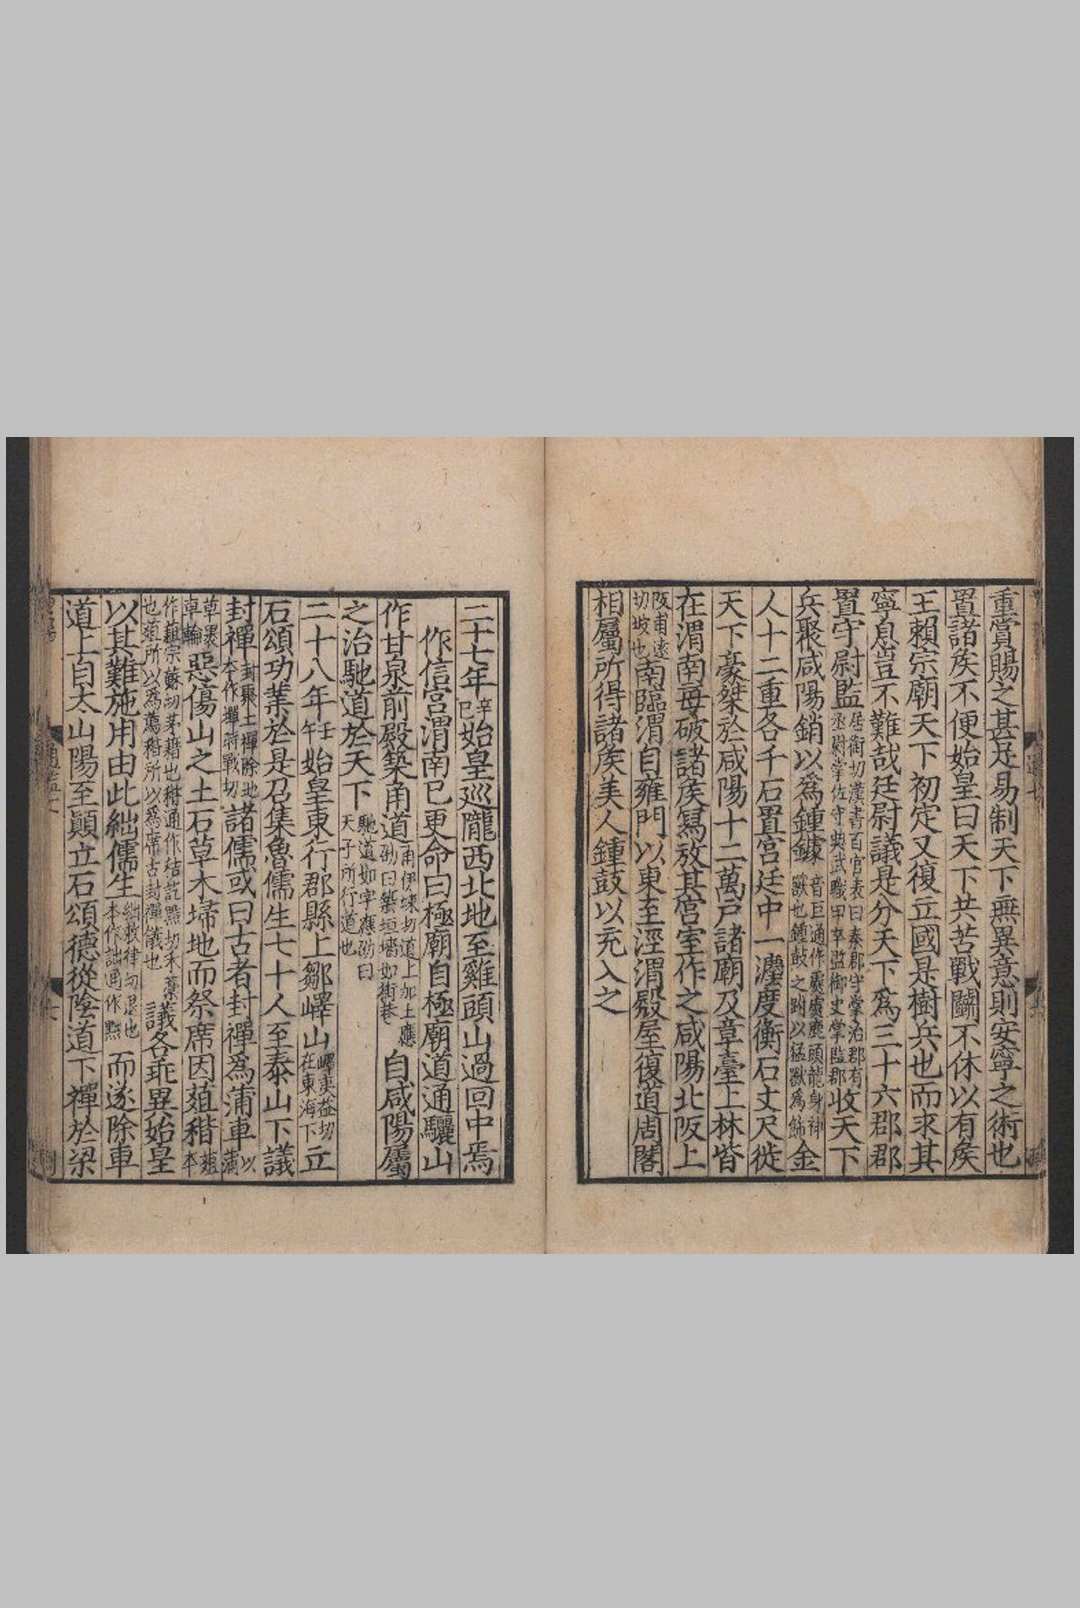 重賞賜之甚足易制天下無異意則安寧之術也
置諸矦不便始皇曰天下共苦戰鬬不休以有矦
王賴宗廟天下初定又復立國是樹兵也而求其
寧息豈不難哉廷尉議是分天下爲三十六郡郡
置守尉監居衘切漢書百官表曰秦郡守掌治郡有丞尉掌佐守典武職甲卒監御史掌監郡收天下
兵聚咸陽銷以爲鍾鐻音巨通作虡虡鹿頭龍身神獸也鍾鼓之跗以猛獸爲飾金
人十二重各千石置宮廷中一灋度衡石丈尺徙
天下豪桀於咸陽十二萬戸諸廟及章臺上林皆
在渭南每破諸矦寫放其宮室作之咸陽北阪上
阪甫遠切坡也南臨渭自雍門以東至涇渭殿屋復道周閣
相屬所得諸矦美人鍾鼓以充入之
二十七年辛巳始皇巡隴西北地至雞頭山過回中焉
作信宮渭南已更命曰極廟自極廟道通驪山
作甘泉前殿築甬道甬伊竦切道上加土應劭曰築垣墻如街巷自咸陽屬
之治馳道於天下馳道如字應劭曰天子所行道也
二十八年壬午始皇東行郡縣上鄒嶧山嶧夷益切在東海下立
石頌功業於是召集魯儒生七十人至泰山下議
封禪封聚土禪除地本作墠蒋戰切諸儒或曰古者封禪爲蒲車以蒲
草裹車輪惡傷山之土石草木埽地而祭席因葅稭葅本
作蒩宗蘇切茅藉也稭通作秸訖黠切禾稾也蒩所以爲薦稭所以爲席古封禪儀也議各乖異始皇
以其難施用由此絀儒生絀敕律切退也本作詘通作黜而遂除車
道上自太山陽至顚立石頌德從陰道下禪於梁